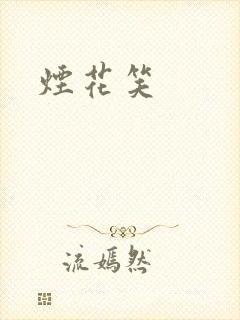 煙花笑
流嫣然